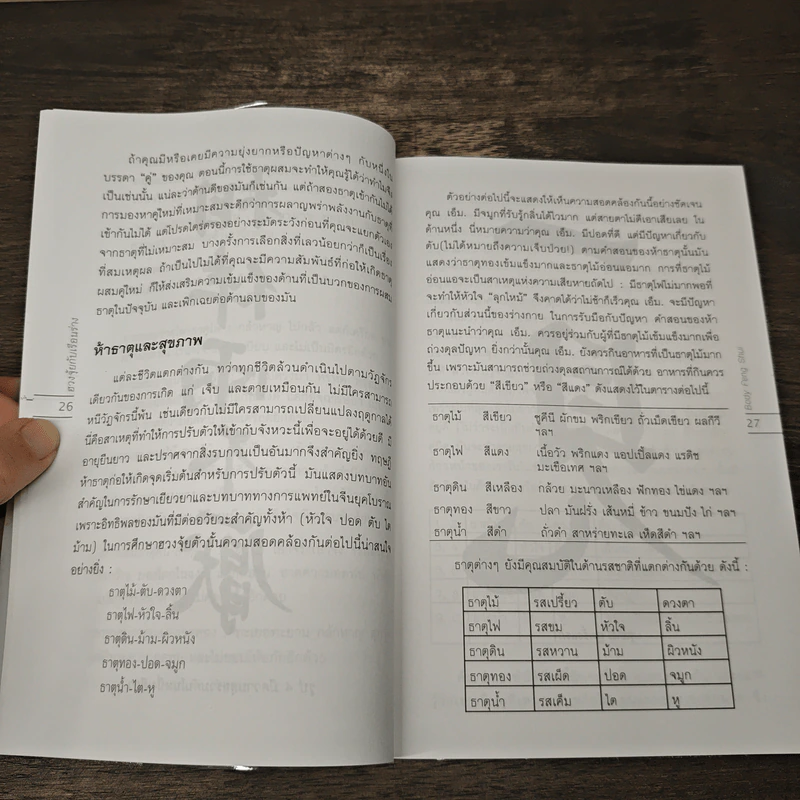 ถ้าคุณมีหรือเคยมีความยุ่งยากหรือปัญหาต่างๆ กับหนึ่งใน
บรรดา "คู่" ของคุณ ตอนนี้การใช้ธาตุผสมจะทำให้คุณรู้ได้ว่าทำไมจึง
เป็นเช่นนั้น แน่ละว่าด้านดีของมันก็เช่นกัน แต่ถ้าสองธาตุเข้ากันไม่ได้
การมองหาคู่ใหม่ที่เหมาะสมจะดีกว่าการผลาญพร่าพลังงานกับธาตุที่
เข้ากันไม่ได้ แต่โปรดไตร่ตรองอย่างระมัดระวังก่อนที่คุณจะแยกตัวเอง
จากธาตุที่ไม่เหมาะสม บางครั้งการเลือกสิ่งที่เลวน้อยกว่าก็เป็นเรื่อง
ที่สมเหตุผล ถ้าเป็นไปไม่ได้ที่คุณจะมีความสัมพันธ์ที่ก่อให้เกิดธาตุ
ผสมคู่ใหม่ ก็ให้ส่งเสริมความเข้มแข็งของด้านที่เป็นบวกของการผสม
ธาตุในปัจจุบัน และเพิกเฉยต่อด้านลบของมัน
ห้าธาตุและสุขภาพ
แต่ละชีวิตแตกต่างกัน ทว่าทุกชีวิตล้วนดำเนินไปตามวัฏจักร
เดียวกันของการเกิด แก่ เจ็บ และตายเหมือนกัน ไม่มีใครสามารถ
หนีวัฏจักรนี้พ้น เช่นเดียวกับไม่มีใครสามารถเปลี่ยนแปลงฤดูกาลได้
นี่คือสาเหตุที่ทำให้การปรับตัวให้เข้ากับจังหวะนี้เพื่อจะอยู่ได้ด้วยดี มี
อายุยืนยาว และปราศจากสิ่งรบกวนเป็นอันมากจึงสำคัญยิ่ง ทฤษฎี
ห้าธาตุก่อให้เกิดจุดเริ่มต้นสำหรับการปรับตัวนี้ มันแสดงบทบาทอัน
สำคัญในการรักษาเยียวยาและบทบาททางการแพทย์ในจีนยุคโบราณ
เพราะอิทธิพลของมันที่มีต่ออวัยวะสำคัญทั้งห้า (หัวใจ ปอด ตับ ไต
ม้าม) ในการศึกษาฮวงจุ้ยตัวนั้นความสอดคล้องกันต่อไปนี้น่าสนใจ
อย่างยิ่ง :
ธาตุไม้-ตับ-ดวงตา
ธาตุไฟ-หัวใจ-ลิ้น
ธาตุดิน-ม้าม-ผิวหนัง
ธาตุทอง-ปอด-จมูก
ธาตุน้ำ-ไต-หู
ฮวงจุ้ยกับเรือนร่าง
26
ตัวอย่างต่อไปนี้จะแสดงให้เห็นความสอดคล้องกันนี้อย่างชัดเจน
คุณ เอ็ม. มีจมูกที่รับรู้กลิ่นได้ไวมาก แต่สายตาไม่ดีเอาเสียเลย ใน
ด้านหนึ่ง นี่หมายความว่าคุณ เอ็ม. มีปอดที่ดี แต่มีปัญหาเกี่ยวกับ
ตับ(ไม่ได้หมายถึงความเจ็บป่วย!) ตามคำสอนของห้าธาตุนั้นมัน
แสดงว่าธาตุทองเข้มแข็งมากและธาตุไม้อ่อนแอมาก การที่ธาตุไม้
อ่อนแอจะเป็นสาเหตุแห่งความเสียหายถัดไป : มีธาตุไฟไม่มากพอที่
จะทำให้หัวใจ "ลุกไหม้" จึงคาดได้ว่าไม่ช้าก็เร็วคุณ เอ็ม. จะมีปัญหา
เกี่ยวกับส่วนนี้ของร่างกาย ในการรับมือกับปัญหา คำสอนของห้า
ธาตุแนะนำว่าคุณ เอ็ม. ควรอยู่ร่วมกับผู้ที่มีธาตุไม้เข้มแข็งมากเพื่อ
ถ่วงดุลปัญหา ยิ่งกว่านั้นคุณ เอ็ม. ยังควรกินอาหารที่เป็นธาตุไม้มาก
ขึ้น เพราะมันสามารถช่วยถ่วงดุลสถานการณ์ได้ด้วย อาหารที่กินควร
ประกอบด้วย "สีเขียว" หรือ "สีแดง" ดังแสดงไว้ในตารางต่อไปนี้
ธาตุไม้ สีเขียว ซูคีนี ผักขม พริกเขียว ถั่วเม็ดเขียว ผลกีวี
ฯลฯ
ธาตุไฟ สีแดง เนื้อวัว พริกแดง แอปเปิ้ลแดง แรดิช
มะเขือเทศ ฯลฯ
ธาตุดิน สีเหลือง กล้วย มะนาวเหลือง ฟักทอง ไข่แดง ฯลฯ
ธาตุทอง สีขาว ปลา มันฝรั่ง เส้นหมี่ ข้าว ขนมปัง ไก่ ฯลฯ
ธาตุน้ำ สีดำ ถั่วดำ สาหร่ายทะเล เห็ดสีดำ ฯลฯ
ธาตุต่างๆ ยังมีคุณสมบัติในด้านรสชาติที่แตกต่างกันด้วย ดังนี้ :
ธาตุไม้ รสเปรี้ยว ตับ ดวงตา
ธาตุไฟ รสขม หัวใจ ลิ้น
ธาตุดิน รสหวาน ม้าม ผิวหนัง
ธาตุทอง รสเผ็ด ปอด จมูก
ธาตุน้ำ รสเค็ม ไต หู
Body Feng Shui
27